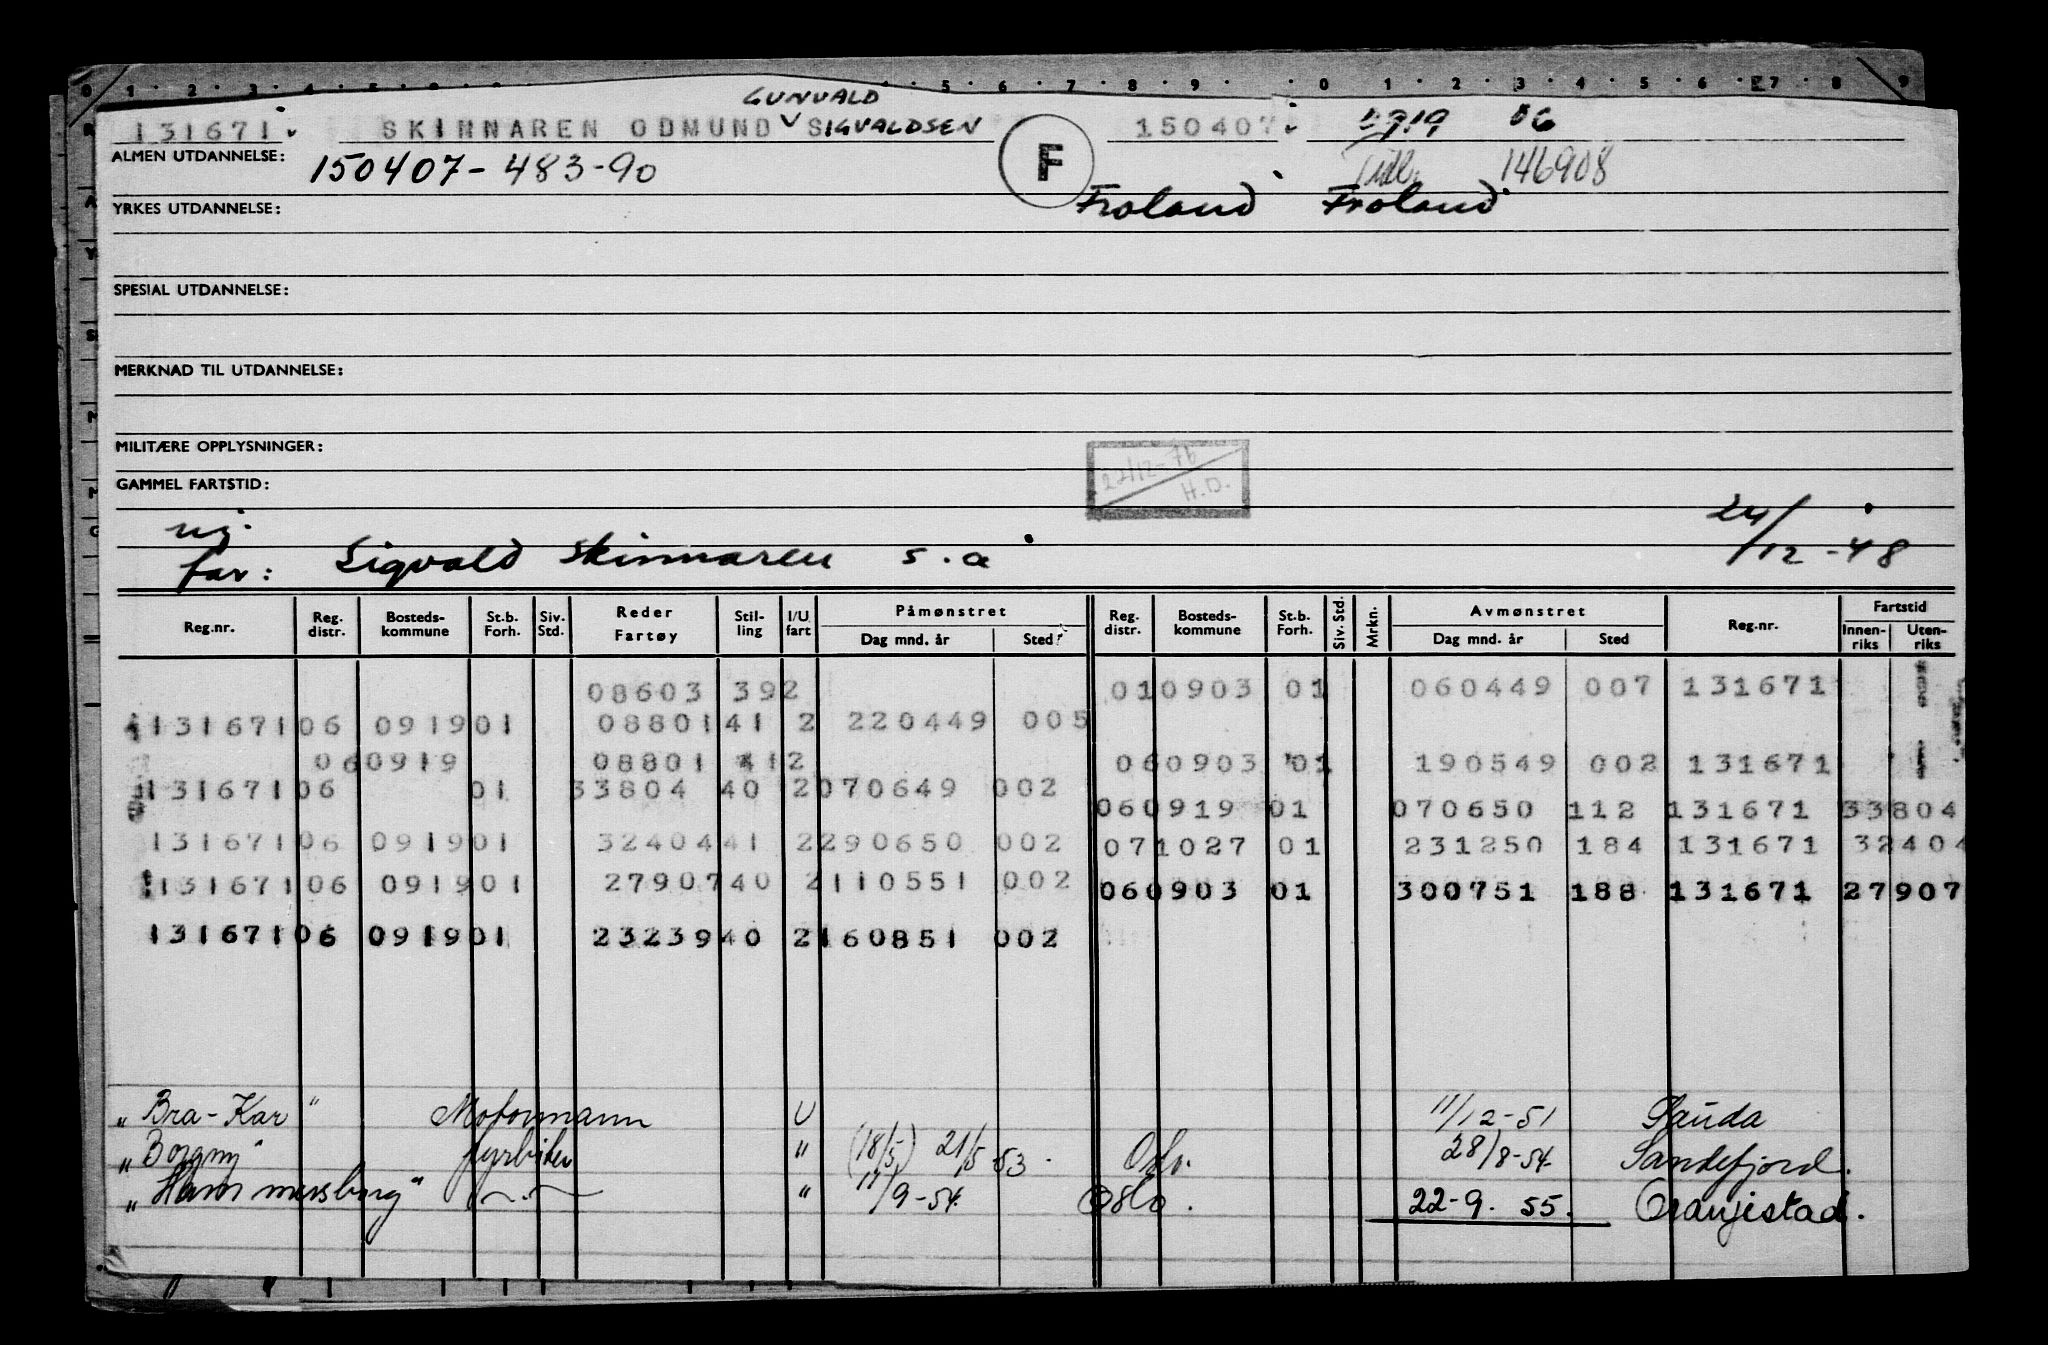 GUNVALD
131671 SKINNAREN ODMUND SIGVALDSEN 150407 0919 06
ALMEN UTDANNELSE: 150407-483-90 F 146908
YRKES UTDANNELSE: Froland Froland
SPESIAL UTDANNELSE:
MERKNAD TIL UTDANNELSE:
MILITÆRE OPPLYSNINGER:
22/12-76
H.D.
GAMMEL FARTSTID:
24/12-48
far: Sigvald Skinnaren s.a
Reg.nr. Reg. distr. Bosteds-kommune St.b. Forh. Siv. Std. Reder Fartøy Stil-ling I/U fart Påmønstret Dag mnd. år Sted Reg. distr. Bosteds-kommune St.b. Forh. Siv. Std. Mrkn. Avmønstret Dag mnd. år Sted Reg.nr. Fartstid Innen-riks Uten-riks
08603 392 010903 01 060449 007 131671
131671 06 0919 01 08801 41 2 220449 005
060919 08801 412 060903 01 190549 002 131671
131671 06 01 33804 40 2 070649 002 060919 01 070650 112 131671 33804
131671 06 0919 01 32404 41 2 290650 002 071027 01 231250 184 131671 32404
131671 06 0919 01 27907 40 2 110551 002 060903 01 300751 188 131671 27907
131671 06 0919 01 23239 40 2 160851 002
"Bra-Kar" Motormann U 11/12-51 Sauda
"Borgny" fyrbøter " (18/5) 21/5 53. Oslo. 28/8-54. Sandefjord.
" " 17/9-54. Oslo. 22-9. 55. Oranjestad.